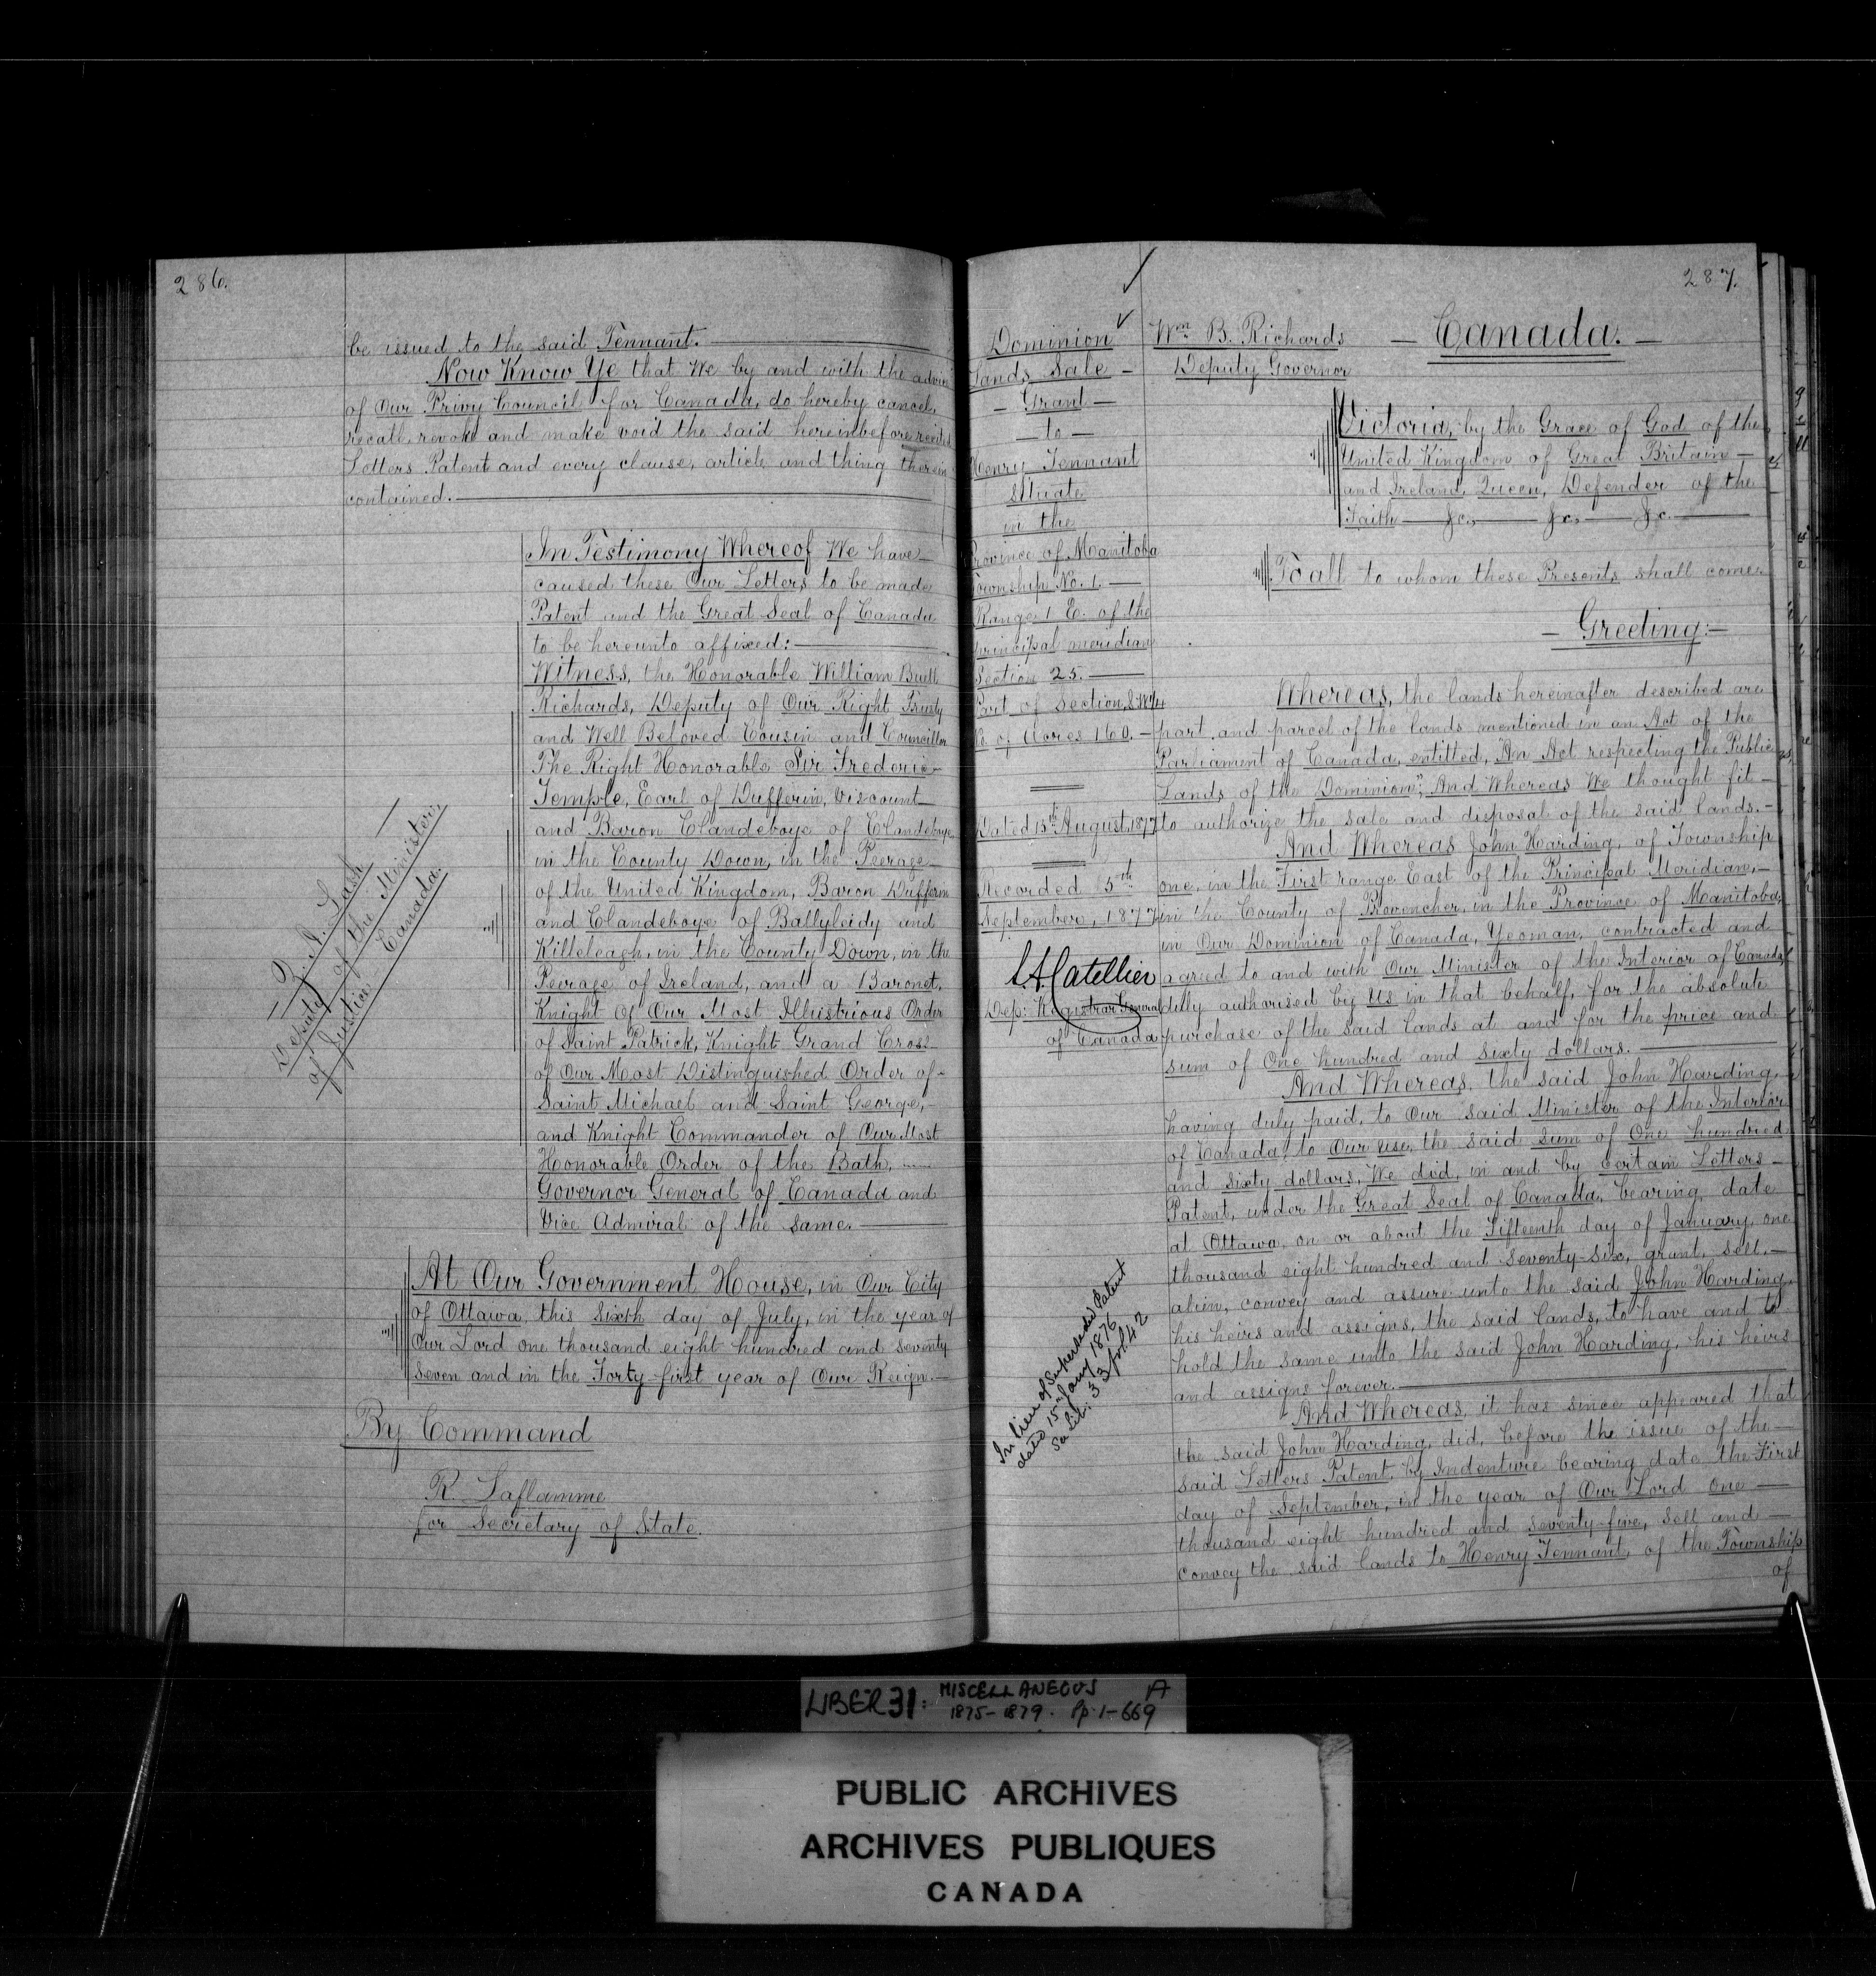 286.
be issued to the said Tennant.
Now Know Ye that We by and with the advice
of Our Privy Council for Canada, do hereby cancel,
recall, revoke and make void the said hereinbefore recited
Letters Patent and every clause, article and thing therein
contained.
In Testimony Whereof We have
caused these Our Letters to be made
Patent and the Great Seal of Canada
to be hereunto affixed:
Witness, the Honorable William Buell
Richards, Deputy of Our Right Trusty
and Well Beloved Cousin and Councillor
The Right Honorable Sir Frederic
Temple, Earl of Dufferin, Viscount
and Baron Clandeboye of Clandeboye
in the County Down, in the Peerage
of the United Kingdom, Baron Dufferin
and Clandeboye of Ballyleidy and
Killeleagh, in the County Down, in the
Peerage of Ireland, and a Baronet,
Knight of Our Most Illustrious Order
of Saint Patrick, Knight Grand Cross
of Our Most Distinguished Order of
Saint Michael and Saint George,
and Knight Commander of Our Most
Honorable Order of the Bath,
Governor General of Canada and
Vice Admiral of the same.
At Our Government House, in Our City
of Ottawa, this Sixth day of July, in the year of
Our Lord one thousand eight hundred and seventy
seven and in the Forty-first year of Our Reign.
By Command
R. Laflamme
for Secretary of State.
Z. A. Lash
Deputy of the Minister
of Justice Canada.
287.
Dominion
Lands Sale
Grant
to
Henry Tennant
Situate
in the
Province of Manitoba
Township No. 1.
Range 1 E. of the
principal meridian
Section 25.
Part of Section, S.W¼
No. of Acres 160.
Dated 15th August, 1877
Recorded 5th
September, 1877
L. A. Catellier
Dep: Registrar General
of Canada
In lieu of Superseded Patent
dated 15th Jany 1876
Lib: 33 fol. 42
Wm B. Richards
Deputy Governor
Canada.
Victoria, by the Grace of God of the
United Kingdom of Great Britain
and Ireland, Queen, Defender of the
Faith &c., &c. &c.
To all to whom these Presents shall come
Greeting:
Whereas, the lands hereinafter described are
part and parcel of the lands mentioned in an Act of the
Parliament of Canada, entitled, "An Act respecting the Public
Lands of the Dominion", And Whereas We thought fit
to authorize the sale and disposal of the said lands.
And Whereas John Harding, of Township
one, in the First range East of the Principal Meridian,
in the County of Provencher, in the Province of Manitoba,
in Our Dominion of Canada, Yeoman, contracted and
agreed to and with Our Minister of the Interior of Canada,
duly authorised by Us in that behalf, for the absolute
purchase of the said lands at and for the price and
sum of One hundred and sixty dollars.
And Whereas, the said John Harding,
having duly paid, to Our said Minister of the Interior
of Canada, to Our use, the said sum of One hundred
and sixty dollars, We did, in and by certain Letters
Patent, under the Great Seal of Canada, bearing date
at Ottawa, on or about the Fifteenth day of January, one
thousand eight hundred and seventy-six, grant, sell,
alien, convey and assure unto the said John Harding,
his heirs and assigns, the said lands, to have and to
hold the same unto the said John Harding, his heirs
and assigns forever.
And Whereas, it has since appeared that
the said John Harding, did, before the issue of the
said Letters Patent, by Indenture bearing date the First
day of September, in the year of Our Lord one
thousand eight hundred and seventy-five, sell and
convey the said lands to Henry Tennant, of the Township
of
LIBER 31: MISCELLANEOUS A
1875-1879. Pp. 1-669
PUBLIC ARCHIVES
ARCHIVES PUBLIQUES
CANADA